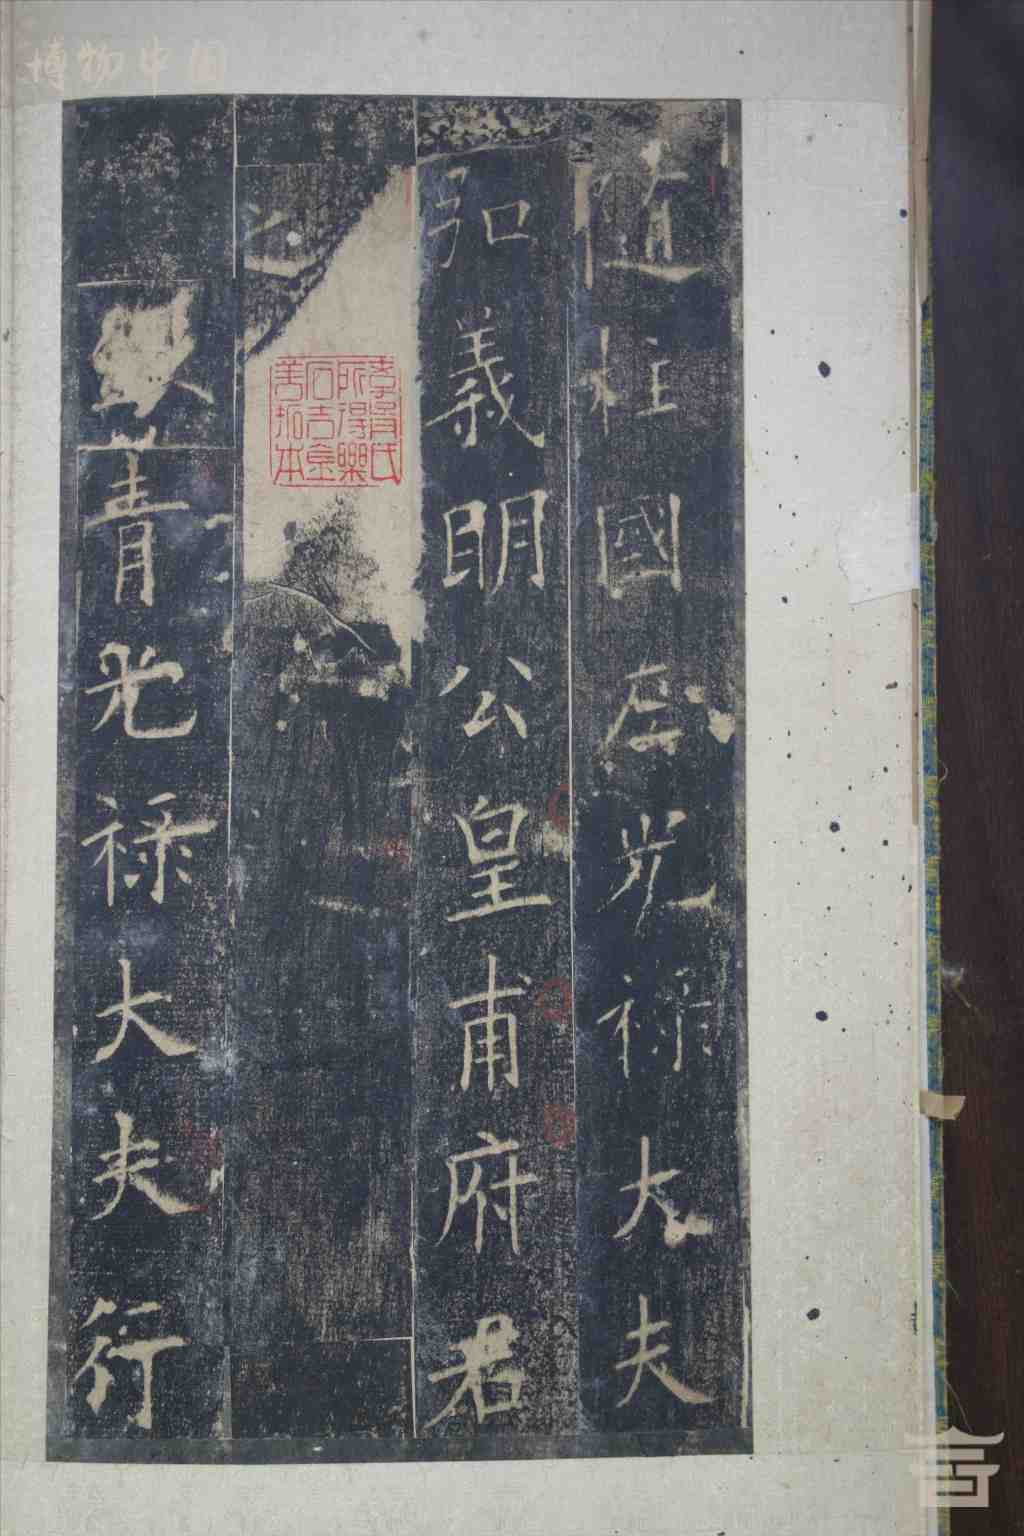 博物中国
隨柱國左光祿大夫
弘義明公皇甫府君
之
青光祿大夫行
氏
所得樂
石吉金
善拓本